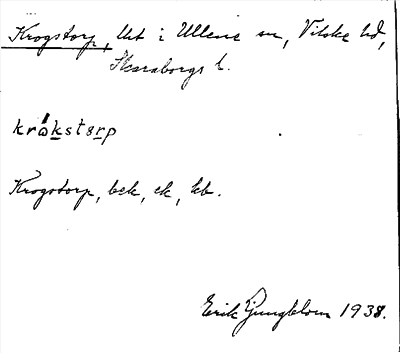 Krogstorp, Ut i Ullene sn, Vilske hd,
Skaraborgs l.
krókstɵrp
Krogstorp, bek, ek, kb.
Erik Ljungblom 1938.